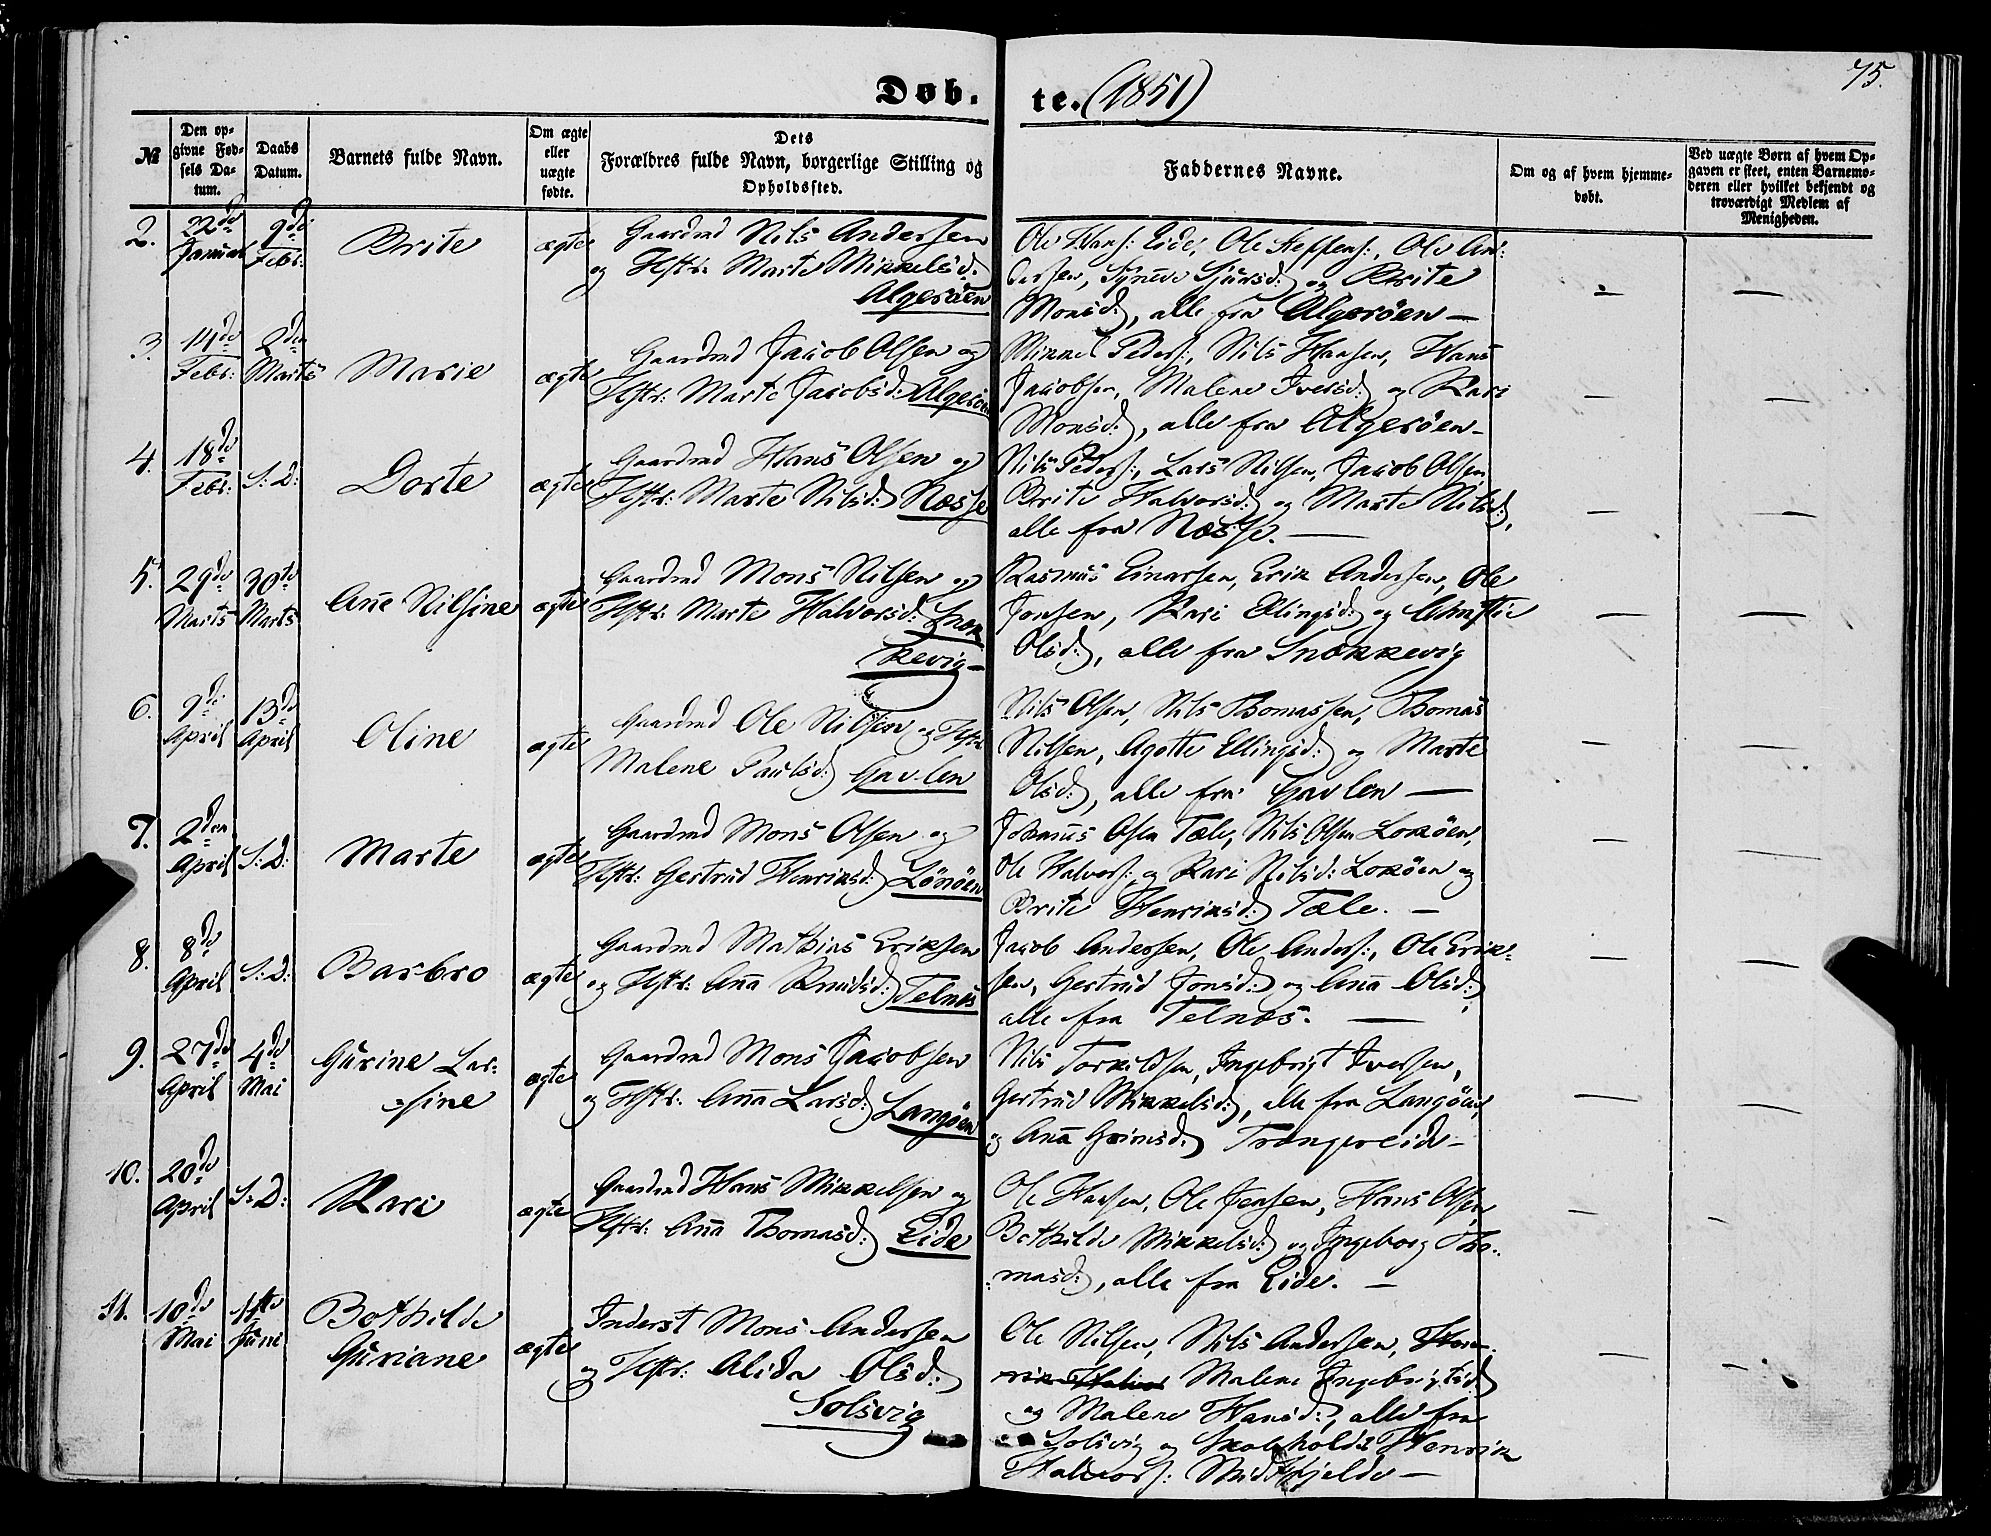 75.
Døb. te. (1851)
№
Den op-
givne Fød-
sels Da-
tum.
Daabs
Datum.
Barnets fulde Navn.
Om ægte
eller
uægte
fødte.
Dets
Forældres fulde Navn, borgerlige Stilling og
Opholdssted.
Faddernes Navne.
Om og af hvem hjemme-
døbt.
Ved uægte Børn af hvem Op-
gaven er skeet, enten Barnemo-
deren eller hvilket bekjendt og
troværdigt Medlem af
Menigheden.
2.
22de
Januar
9de
Febr:
Brite
ægte
Gaardmd Nils Andersen
og Hstr: Marte Mikkelsd:
Algerøen
Ole Hans: Eide, Ole Steffens:, Ole An:
dersen, Syneve Sjursd: og Brite
Monsd:, alle fra Algerøen —
3.
14de
Febr:
2den
Marts
Marie
ægte
Gaardmd Jacob Olsen og
Hstr: Marte Jacobsd: Algerøen
Mikkel Peders:, Nils Hansen, Hans
Jacobsen, Malene Iversd: og Kari
Monsd:, alle fra Algerøen —
4.
18de
Febr:
S: D:
Dorte
ægte
Gaardmd Hans Olsen og
Hstr: Marte Nilsd: Næsse
Nils Peders:, Lars Nilsen, Jacob Olsen
Brite Halvorsd: og Marte Nilsd:,
alle fra Næsse. —
5.
29de
Marts
30te
Marts
Ane Nilsine
ægte
Gaardmd Mons Nilsen og
Hstr: Marte Halvorsd: Snek
kevig —
Rasmus Einarsen, Erik Andersen, Ole
Jonsen, Kari Ellingsd: og Christie
Olsd:, alle fra Snekkevig
6.
9de
April
13de
April
Oline
ægte
Gaardmd Ole Nilsen og Hstr:
Malene Paulsd: Gavlen
Nils Olsen, Nils Thomassen, Thomas
Nilsen, Agotte Ellingsd: og Marte
Olsd:, alle fra Gavlen —
7.
2den
April
S: D:
Marte
ægte
Gaardmd Mons Olsen og
Hstr: Gertrud Henriksd: Lønøen
Johannes Olsen Tæle, Nils Olsen Lokøen,
Ole Halvors: og Kari Nilsd: Lokøen og
Brite Henriksd: Tæle. —
8.
8de
April
S: D:
Barbro
ægte
Gaardmd Mathias Eriksen
og Hstr: Anna Knudsd: Telnes
Jacob Andersen, Ole Anders:, Ole Erik-
sen, Gertrud Jonsd: og Anna Olsd:,
alle fra Telnæs. —
9.
27de
April
4de
Mai
Gurine Lar-
sine
ægte
Gaardmd Mons Jacobsen
og Hstr: Anna Larsd: Langøen
Nils Torkildsen, Ingebrigt Iversen,
Gertrud Mikkelsd:, alle fra Langøen
og Anna Grimsd: Trongereide —
10.
20de
April
S: D:
Kari
ægte
Gaardmd Hans Mikkelsen og
Hstr: Anna Thomasd: Eide
Ole Hansen, Ole Jensen, Hans Olsen,
Bothilde Mikkelsd: og Ingeborg Tho-
masd:, alle fra Eide. —
11.
10de
Mai
11te
Juni
Bothilde
Guriane
ægte
Inderst Mons Andersen
og Hstr: Alida Olsd:
Solsvig
Ole Nilsen, Nils Andersen, Hen-
rik Halvor Malene Ingebrigtsd:
og Malene Hansd:, alle fra
Solsvig og Henrik
Halvors: Midtkjelde —